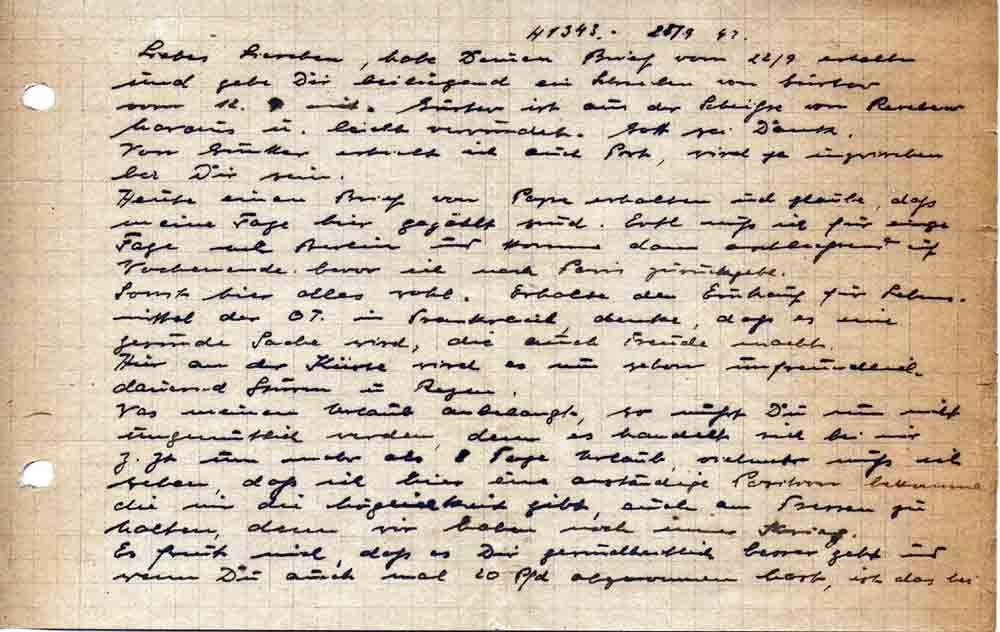 41343. - 28/9 42.
Liebes Lieschen, habe Deinen Brief vom 22/9 erhalten
und gebe Dir beiliegend ein Schreiben von Günter
vom 12. 9 mit. Günter ist aus der Scheiße von
heraus u. leicht verwundet. Gott sei Dank.
Von erhielt ich auch Post, wird ja inzwischen
bei Dir sein.
Heute einen Brief von erhalten und glaube, daß
meine Tage hier gezählt sind. Erst muß ich für einige
Tage nach Berlin und komme dann anschließend auf
Wochenende bevor ich nach Paris zurückgehe.
Sonst hier alles wohl. Erhalte den Einkauf für Lebens-
mittel der OT. in Frankreich, denke, daß es eine
gesunde Sache wird, die auch Freude macht.
Hier an der Küste wird es nun schon unfreundlich
dauernd Sturm u Regen.
Was meinen Urlaub anbelangt, so mußt Du nun nicht
ungemütlich werden, denn es handelt sich bei mir
z. Zt um mehr als 8 Tage Urlaub, vielmehr muß ich
sehen, daß ich hier eine anständige Position bekomme
die mir die Möglichkeit gibt, auch an zu
halten, denn wir haben noch immer Krieg.
Es freut mich, daß es Dir gesundheitlich besser geht und
wenn Du auch mal 20 Pfd abgenommen hast, ist das bei